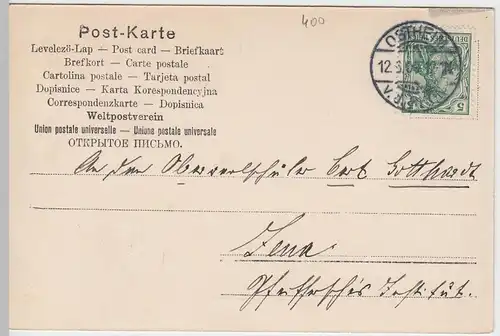 400
Post-Karte
Levelező-Lap — Post card — Briefkaart
Brefkort — Carte postale
Cartolina postale — Tarjeta postal
Dopisnice — Karta Korespondencyjna
Correspondenzkarte — Dopisnica
Weltpostverein
Union postale universelle — Unione postale universale
ОТКРЫТОЕ ПИСЬМО.
OSTHEIM
12.3.04
5
An den Oberrealschüler Curt Gotthardt
Jena
Pfeiffersches Institut.